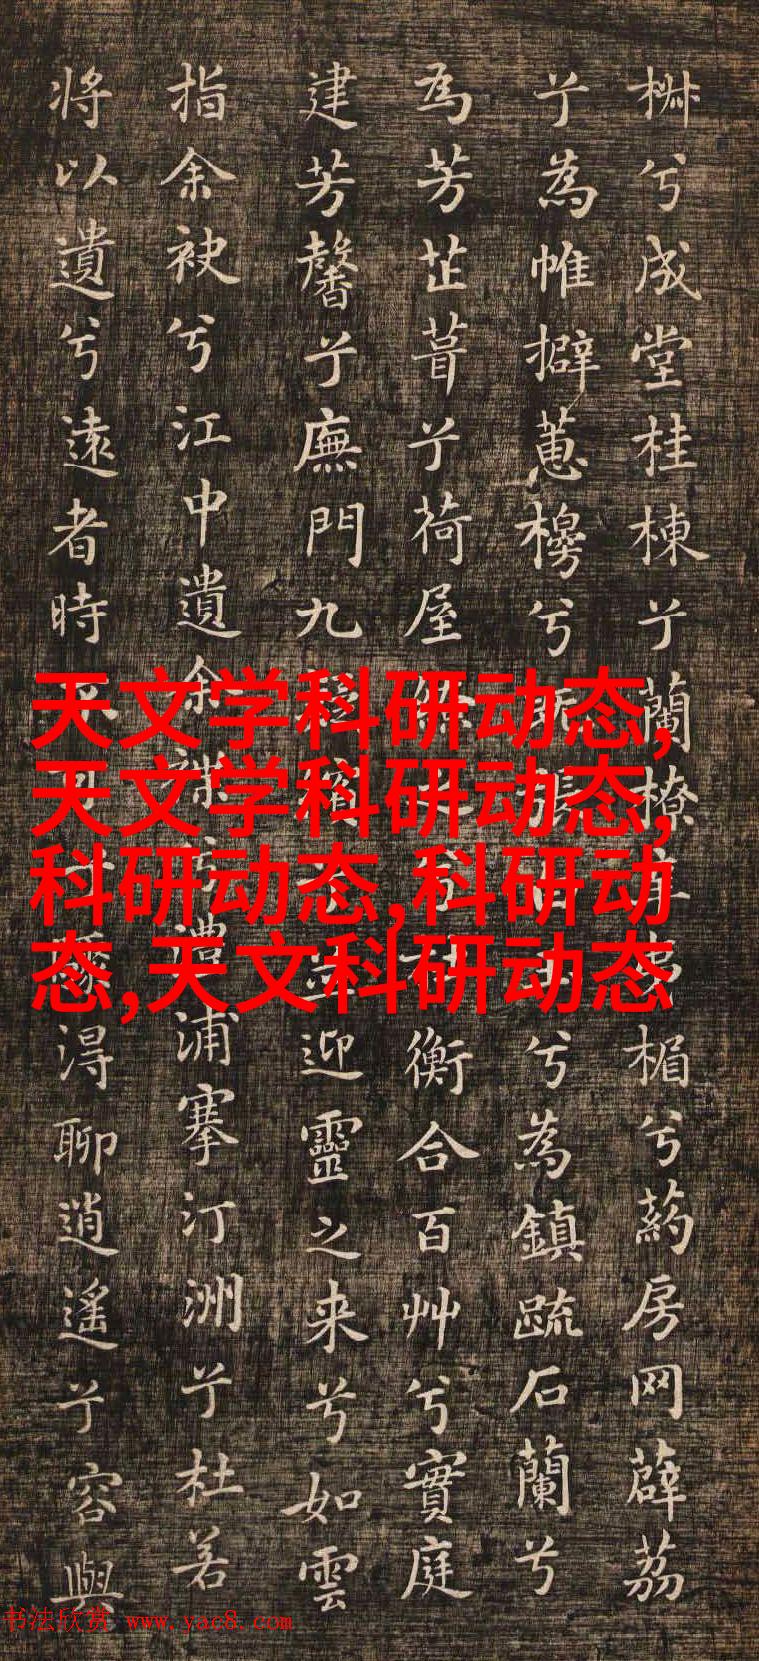 兮成堂桂棟兮蘭橑夷楣兮葯房网薜荔
兮為帷擗蕙櫋兮張兮為鎮疏石蘭兮
為芳芷葺兮荷屋衡合百艸兮實庭
建芳馨兮廡門九迎靈之来兮如雲
指余袂兮江中遺余褋兮澧浦搴汀洲兮杜若
將以遺兮遠者時得聊逍遙兮容與
天文学科研动态,
天文学科研动态,
科研动态,科研动
态,天文科研动态
书法欣赏 www.yac8.com